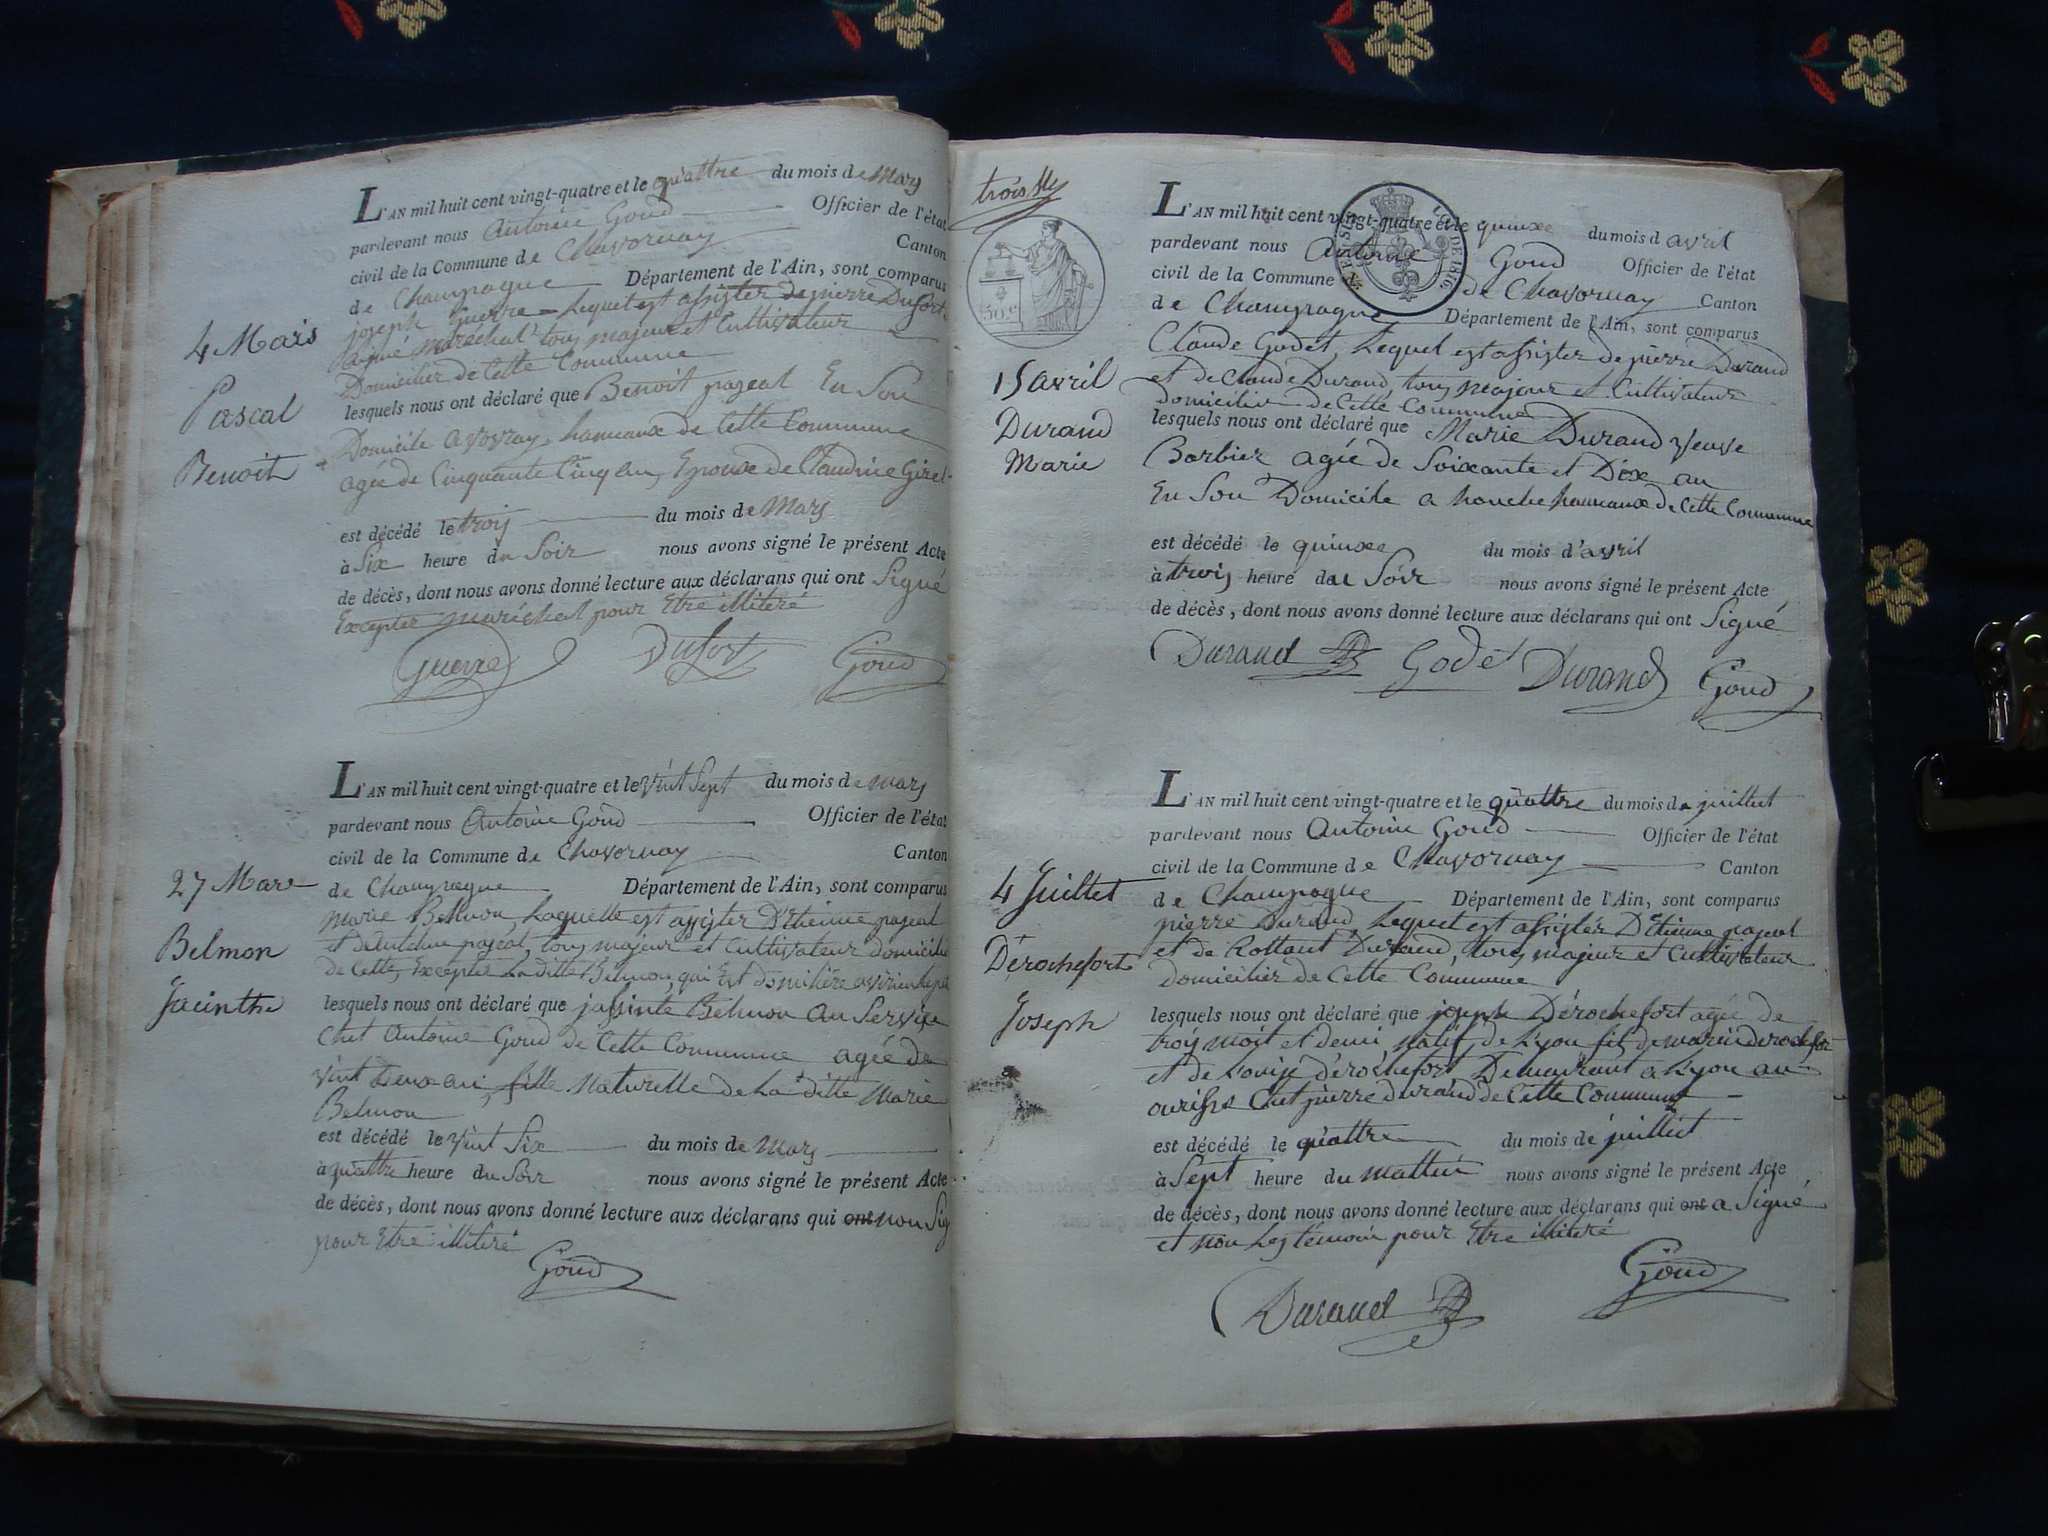 L'AN mil huit cent vingt-quatre et le quattre du mois de Mars
pardevant nous Antoine Goud Officier de l'état
civil de la Commune de Chavornay Canton
de Champagne Département de l'Ain, sont comparus
joseph Guerre Lequel est assister de pierre Dufort
maréchal tous majeur et Cultivateur
Domicilier de Cette Commune
lesquels nous ont déclaré que Benoit pageal En Son
Domicile a vovray, hameaux de Cette Commune
agée de Cinquante Cinq an, Epoux de Claudine Girel
est décédé le trois du mois de Mars
à Six heure du Soir nous avons signé le présent Acte
de décès, dont nous avons donné lecture aux déclarans qui ont Signé
Excepter maréchal pour Etre illiteré
Guerre Dufort Goud
4 Mars
Pascal
Benoit
L'AN mil huit cent vingt-quatre et le vint Sept du mois de mars
pardevant nous Antoine Goud Officier de l'état
civil de la Commune de Chavornay Canton
de Champagne Département de l'Ain, sont comparus
marie Belmon, Laquelle est assister D'Etienne pageal
et d'antoine pageal, tous majeur et Cultivateur domicilie
de Cette, Excepter La ditte Belmon, qui Est domicilière a
lesquels nous ont déclaré que jassinte Belmon au Service
Chet Antoine Goud de Cette Commune agée de
vint Deux an, fille Naturelle de La ditte Marie
Belmon
est décédé le vint Six du mois de Mars
à quattre heure du Soir nous avons signé le présent Acte
de décès, dont nous avons donné lecture aux déclarans qui ont non Sig
pour Etre illiteré
Goud
27 Mars
Belmon
Jacinthe
trois
50 c
L'AN mil huit cent vingt-quatre et le quinze du mois d avril
pardevant nous Antoine Goud Officier de l'état
civil de la Commune de Chavornay Canton
de Champagne Département de l'Ain, sont comparus
Claude Godet, Lequel est assister de pierre Durand
et de Claude Durand, tous majeur et Cultivateur
domicilier de Cette Commune
lesquels nous ont déclaré que Marie Durand veuve
Barbier agée de Soixante et Dix an
En Son Domicile a honche hameaux de Cette Commune
est décédé le quinze du mois d'avril
à trois heure du Soir nous avons signé le présent Acte
de décès, dont nous avons donné lecture aux déclarans qui ont Signé
Durand Godet Durand Goud
DE 1816
15 avril
Durand
Marie
L'AN mil huit cent vingt-quatre et le quattre du mois de juillet
pardevant nous Antoine Goud Officier de l'état
civil de la Commune de Chavornay Canton
de Champagne Département de l'Ain, sont comparus
pierre Durand, Lequel est assister D'Etienne pageal
et de Rolland Durand, tous majeur et Cultivateur
domicilier de Cette Commune
lesquels nous ont déclaré que joseph Dérochefort agée de
trois mois et demi Natif de Lyon fils de marin derochefort
et de Louise dérochefort Demeurant a Lyon au
Chet pierre durand de Cette Commune
est décédé le quattre du mois de juillet
à Sept heure du mattin nous avons signé le présent Acte
de décès, dont nous avons donné lecture aux déclarans qui ont a Signé
et non Les témoin pour Etre illiteré
Durand Goud
4 Juillet
Dérochefort
Joseph